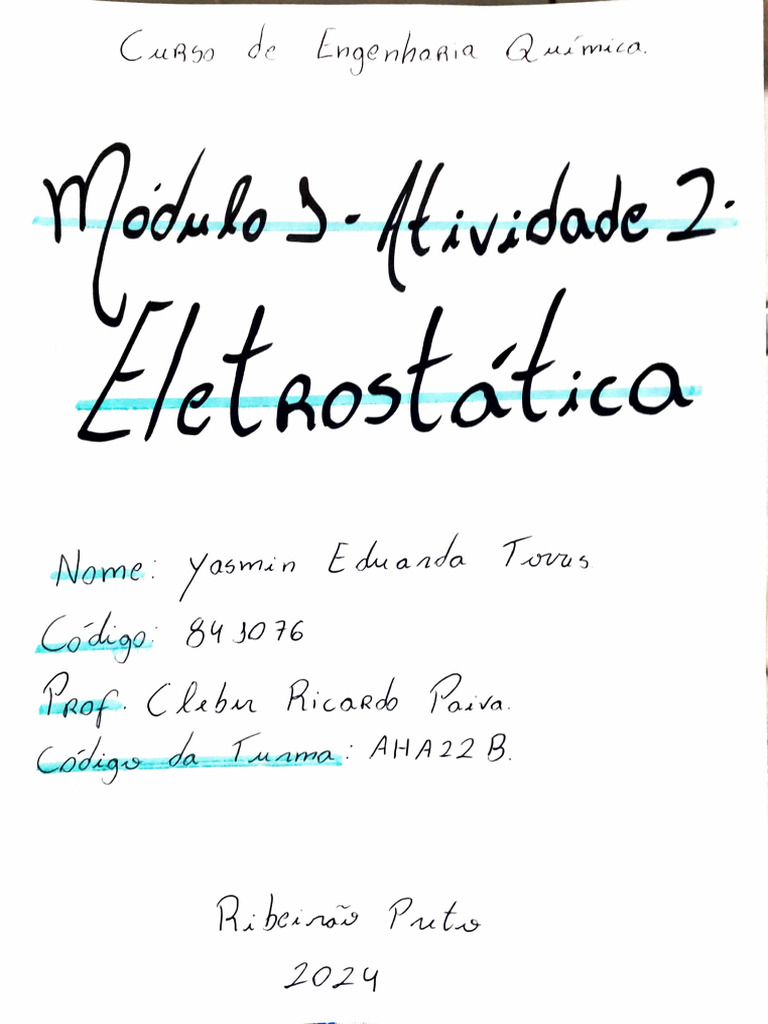 Curso de Engenharia Química.
Módulo 1 - Atividade 2.
Eletrostática
Nome: Yasmin Eduarda Torres
Código: 841076
Prof. Cleber Ricardo Paiva.
Código da Turma: AHA22B.
Ribeirão Preto
2024